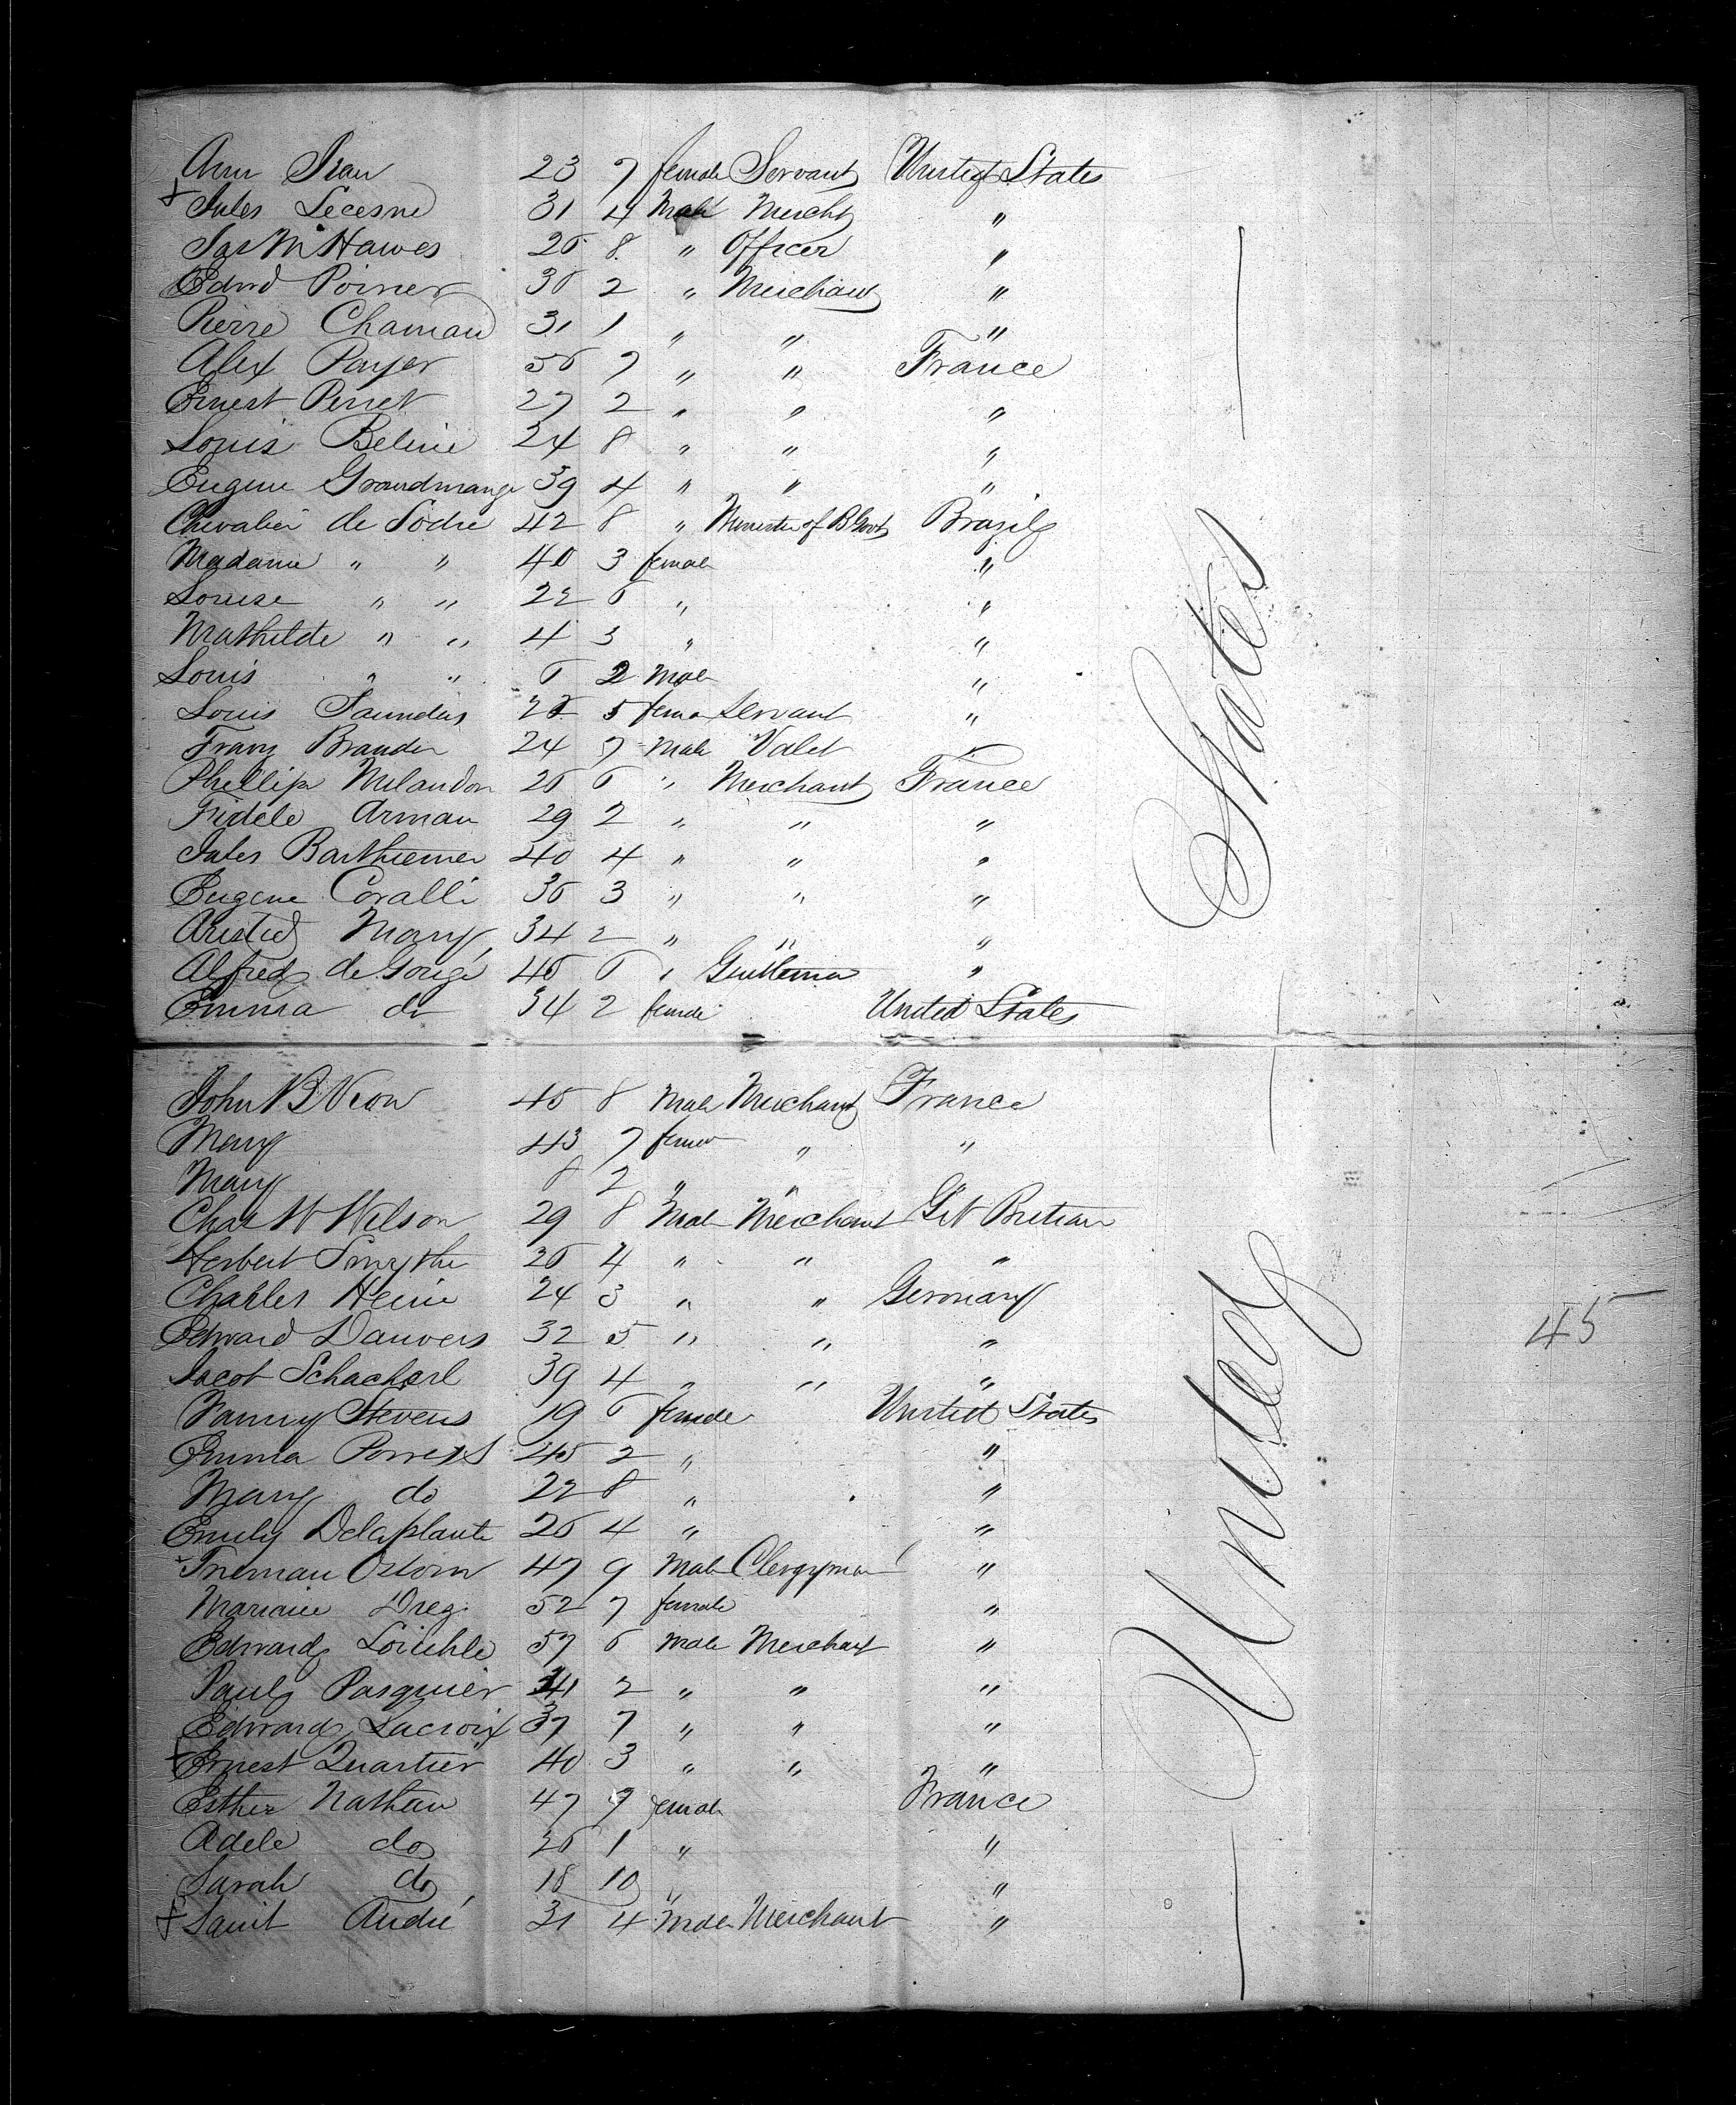 Ann Sean 23 7 female Servant United States
+ Jules Lecesne 31 4 Male Mercht "
Jas M Hawes 26 8 " Officer "
Edwd Poirier 36 2 " Merchant "
Pierre Chamau 31 1 " " "
Alex Payer 56 7 " " France
Ernest Perret 27 2 " " "
Louis Beline 24 8 " " "
Eugene Grandmange 39 4 " " "
Chevalier de Sodre 42 8 " Minister of B Govt Brazil
Madame " " 40 3 female "
Louise " " 22 6 " "
Mathilde " " 4 3 " "
Louis " " 6 2 Male "
Louis Saunders 26 5 fema Servant "
Franz Brander 24 7 Male Valet "
Phillip Milandon 26 6 " Merchant France
Fidele Arman 29 2 " " "
Jules Barthiemer 40 4 " " "
Eugene Coralli 36 3 " " "
Aristid Mary 34 2 " " "
Alfred de Gouge 46 6 " Gentleman "
Emma do 34 2 female United States
John B Veon 46 8 Male Merchant France
Mary 43 7 female " "
Mary 8 2 " "
Chas W Wilson 29 8 Male Merchant Gt Britain
Herbert Smythe 26 4 " " "
Charles Heine 24 3 " " Germany
Edward Danvers 32 5 " " "
Jacob Schacherl 39 4 " " "
Fanny Stevens 19 6 female United States
Emma Porrets 45 2 " "
Mary do 22 8 " "
Emily Delaplante 26 4 " "
Treman Osborn 47 9 Male Clergyman "
Mariane Dreg 52 7 female "
Edward Loiehle 57 6 Male Merchant "
Paul Pasquier 41 2 " " "
Edward Lacroix 37 7 " " "
+ Ernest Quartier 40 3 " " "
Esther Nathan 47 7 female France
Adele do 26 1 " "
Sarah do 18 10 " "
+ Saint André 31 4 Male Merchant "
United States
45